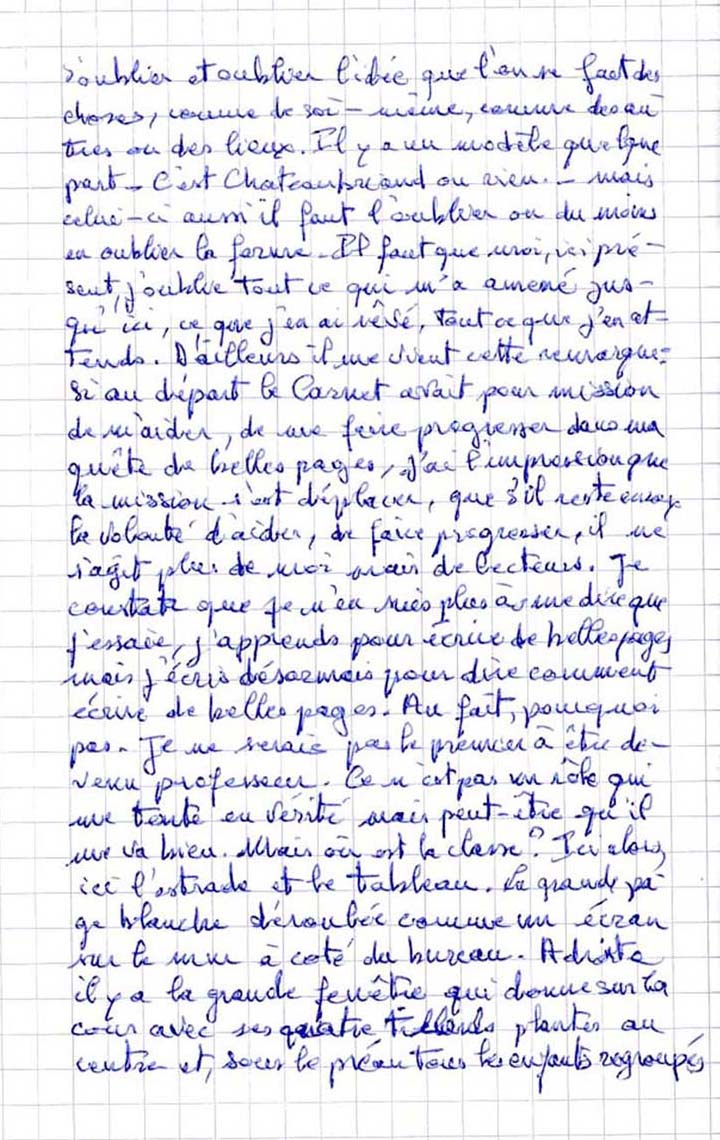 s'oublier et oublier l'idée que l'on se fait des
choses, comme de soi-même, comme des au
tres ou des lieux. Il y a un modèle quelque
part - C'est Chateaubriand ou rien. - mais
celui-ci aussi il faut l'oublier ou du moins
en oublier la forme. Il faut que moi, ici pré-
sent, j'oublie tout ce qui m'a amené jus-
qu'ici, ce que j'en ai rêvé, tout ce que j'en at-
tends. D'ailleurs il me vient cette remarque:
Si au départ le Carnet avait pour mission
de m'aider, de me faire progresser dans ma
quête de belles pages, j'ai l'impression que
la mission s'est déplacer, que s'il reste encore
la volonté d'aider, de faire progresser, il ne
s'agit plus de moi mais de lecteurs. Je
constate que je n'en suis plus à me dire que
j'essaie, j'apprends pour écrire de belles pages
mais j'écris désormais pour dire comment
écrire de belles pages. Au fait, pourquoi
pas. Je ne serais pas le premier à être de-
venu professeur. Ce n'est pas un rôle qui
me tente en vérité mais peut-être qu'il
me va bien. Mais où est la classe? Ici alors,
ici l'estrade et le tableau. La grande pa
ge blanche déroulée comme un écran
sur le mur à coté du bureau. A droite
il y a la grande fenêtre qui donne sur la
cour avec ses quatre tilleuls plantés au
centre et, sous le préau tous les enfants regroupés